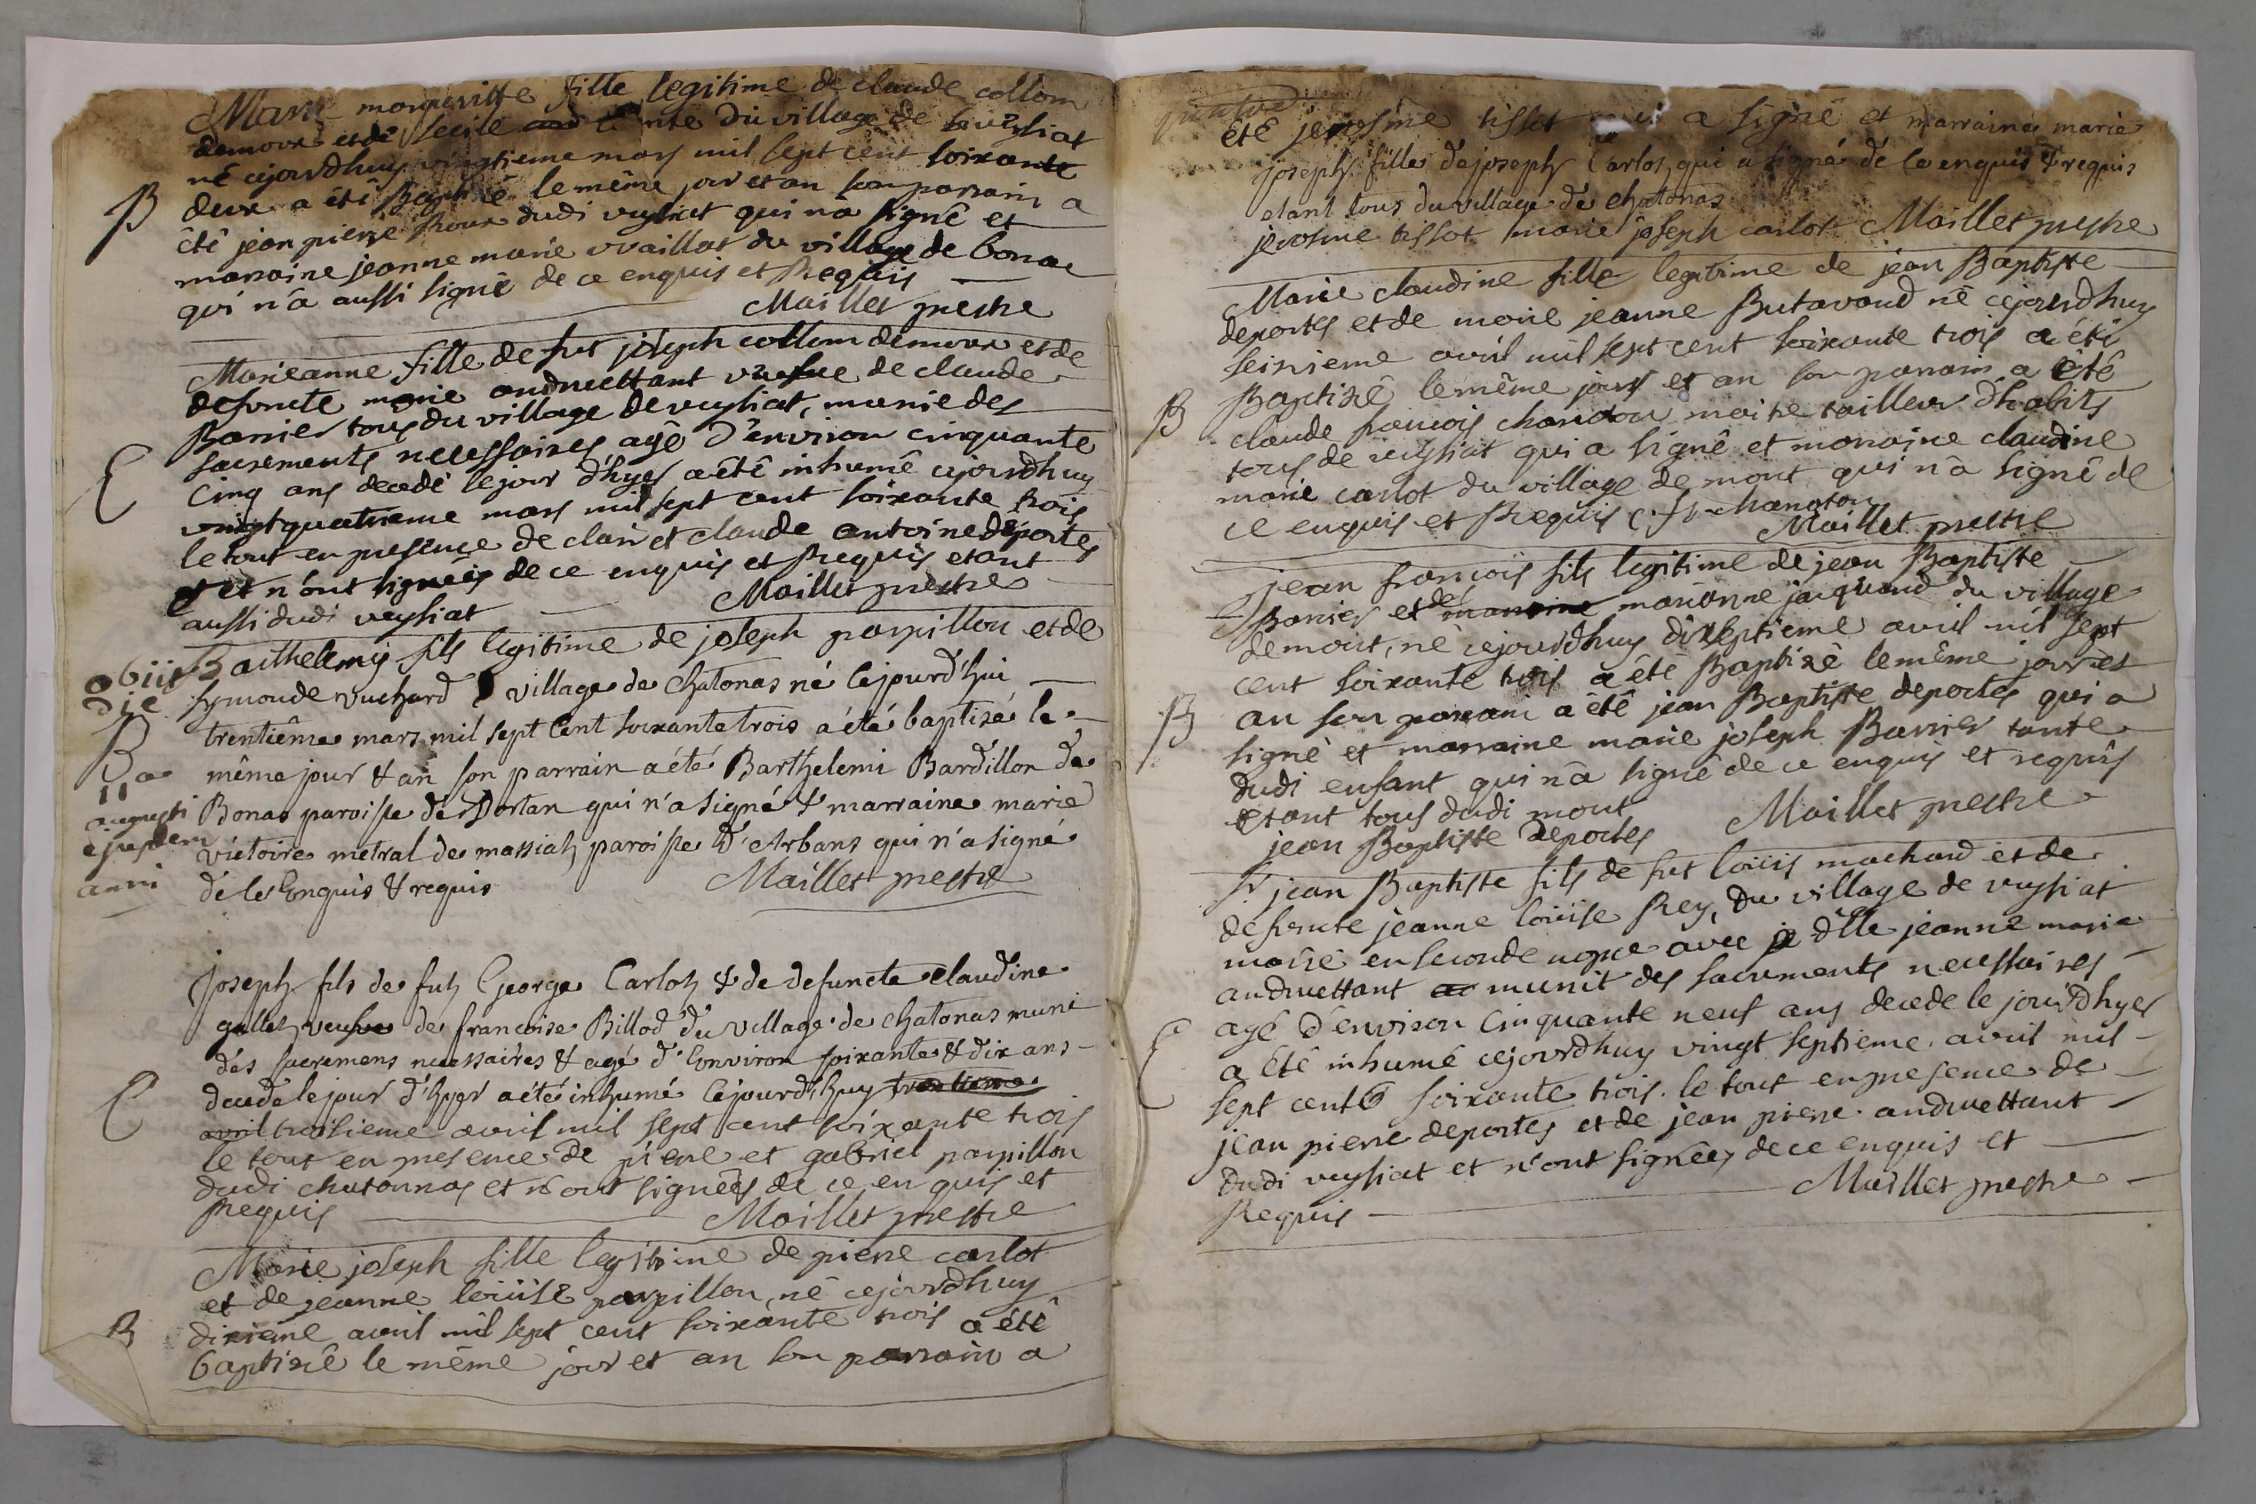 Marie margueritte fille legitime de claude collom
demour et de Cecile du village de veysiat
né cejourdhuy vingtieme mars mil sept cent soixante
deux a été Baptizé le même jour et an son parrain a
B
été jean pierre Roux dudi veysiat qui n'a signé et
marraine jeanne marie vvaillat du village de bonas
qui n'a aussi signé de ce enquis et Requis
Maillet prestre
Marieanne fille de fut joseph collom demour et de
defuncte marie andruettant veufue de claude
Barrier tous du village de veysiat, munie des
sacrements necessaires agé d'environ cinquante
E
cinq ans decedé le jour d'hyer a été inhumé cejourdhuy
vingtquatrieme mars mil sept cent soixante trois
le tout en presence de clair et claude antoine deportes
et n'ont signées de ce enquis et Requis etant
aussi dudi veysiat Maillet prestre
Barthelemy fils legitime de joseph parpillon et de
obiit
die
symonde vuchard village de Chatonas né Cejourd'hui
trentiême mars mil sept Cent soixante trois a été baptizé le
B
même jour & an son parrain a été Barthelemi Bardillon de
3a
11
augusti
Bonas paroisse de Dortan qui n'a signé & marraine marie
ejusdem
victoire metral de massiat paroisse d'Arbans qui n'a signé
anni
de ce Enquis & requis Maillet prestre
Joseph fils de fut George Carlot & de defuncte Claudine
gallet veufve de francoise Billod du village de chatonas muni
des sacremens necessaires & agé d'Environ soixante & dix ans
decedé le jour d'hyer a été inhumé Cejourd'huy trentieme
E
avril troisieme avril mil sept cent soixante trois
le tout en presence de pierre et gabriel parpillon
dudi chatonnas et n'ont signées de ce enquis et
Requis Maillet prestre
Marie joseph fille legitime de pierre carlot
et de jeanne loüise parpillon, né cejourdhuy
B
dixieme avril mil sept cent soixante trois a été
baptizé le même jour et an son parrain a
été jerosme tissot qui a signé et marraine marie
joseph fille de joseph Carlot qui a signé de ce enquis & requis
etant tous du village de chatonas
jerosme tissot marie joseph carlot Maillet prestre
Marie claudine fille legitime de jean Baptiste
deportes et de marie jeanne Butavand né cejourdhuy
seizieme avril mil sept cent soixante trois a été
B
Baptizé le même jour et an son parrain a été
claude francois chanoton maitre tailleur d'habits
tous de veysiat qui a signé et marraine claudine
marie carlot du village de mont qui n'a signé de
ce enquis et Requis C. fr. chanoton
Maillet prestre
jean francois fils legitime de jean Baptiste
Barrier et de marraine marianne jacquand du village
de mont, né cejourdhuy dixseptieme avril mil sept
cent soixante trois a été Baptizé le même jour et
B
an son parrain a été jean Baptiste deportes qui a
signé et marraine marie joseph Barrier tante
dudi enfant qui n'a signé de ce enquis et requis
etant tous dudi mont Maillet prestre
jean Baptiste deportes
Sr jean Baptiste fils de fut loüis machard et de
defuncte jeanne loüise Rey, du village de veysiat
marié en seconde nopce avec dlle jeanne marie
andruettant munit des sacrements necessaires
agé d'environ cinquante neuf ans decede le jour d'hyer
E
a été inhumé cejourdhuy vingt septieme avril mil
sept cent soixante trois. le tout en presence de
jean pierre deportes et de jean pierre andruettant
dudi veysiat et n'ont signées de ce enquis et
Requis Maillet prestre